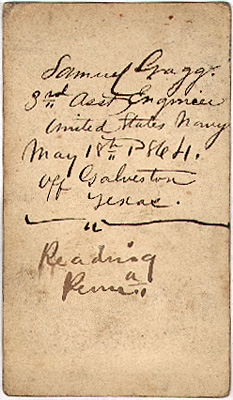 Samuel Gragg.
3rd Asst Engineer
United States Navy
May 18th 1864.
off Galveston
Texas.
"
Reading
Penna.